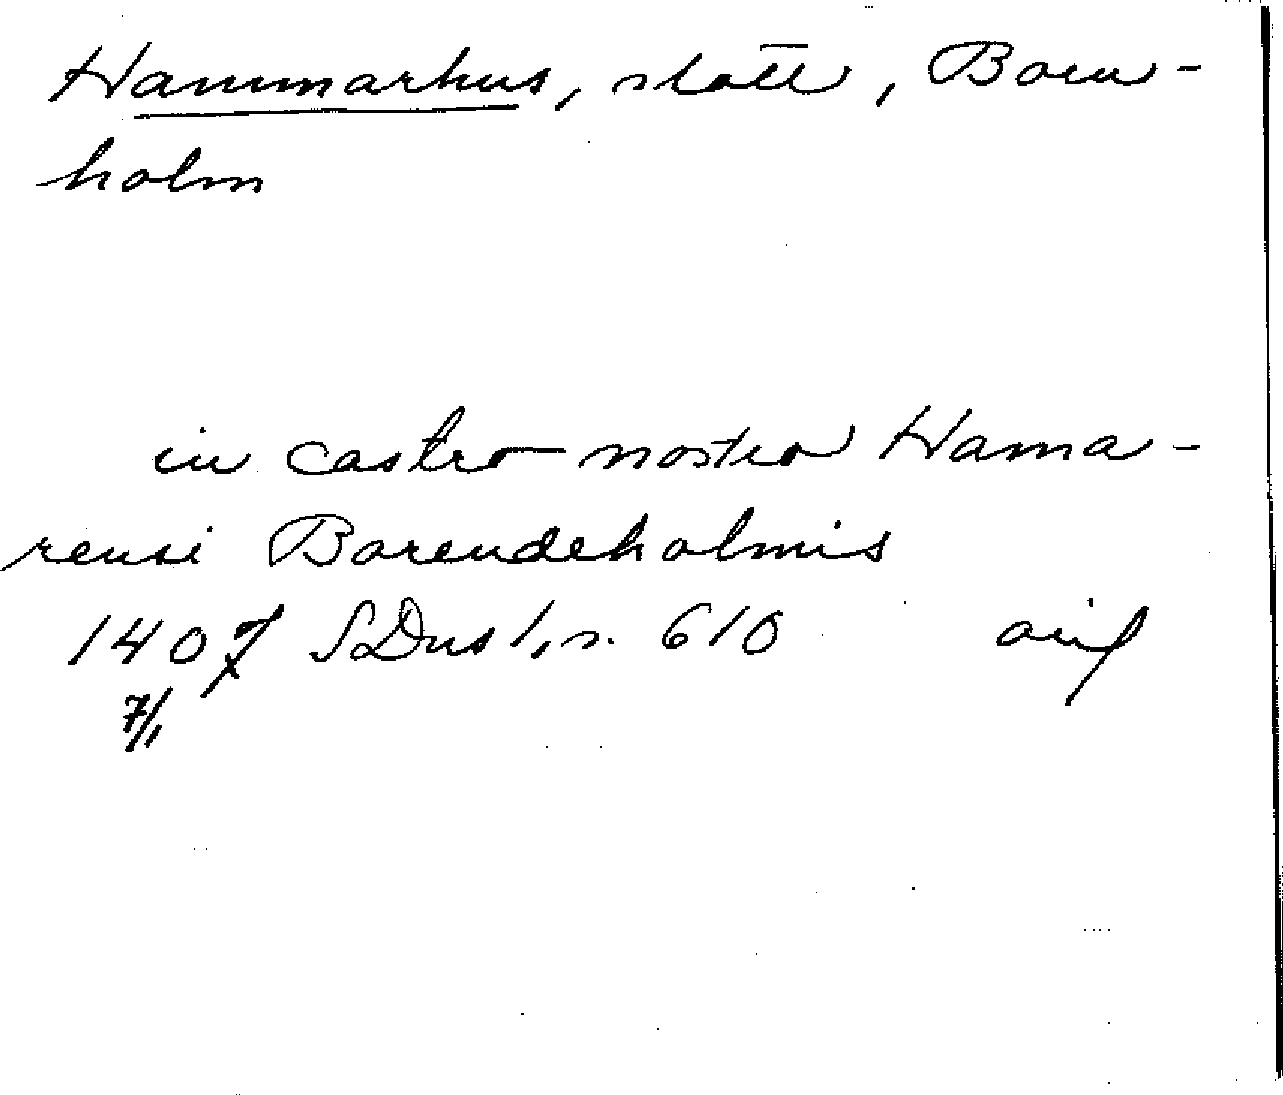 Hammarhus, slott, Born-
holm
in castro nostro Hama-
rensi Borendeholmis
1407 SDns 1, s. 610 avif
7/1